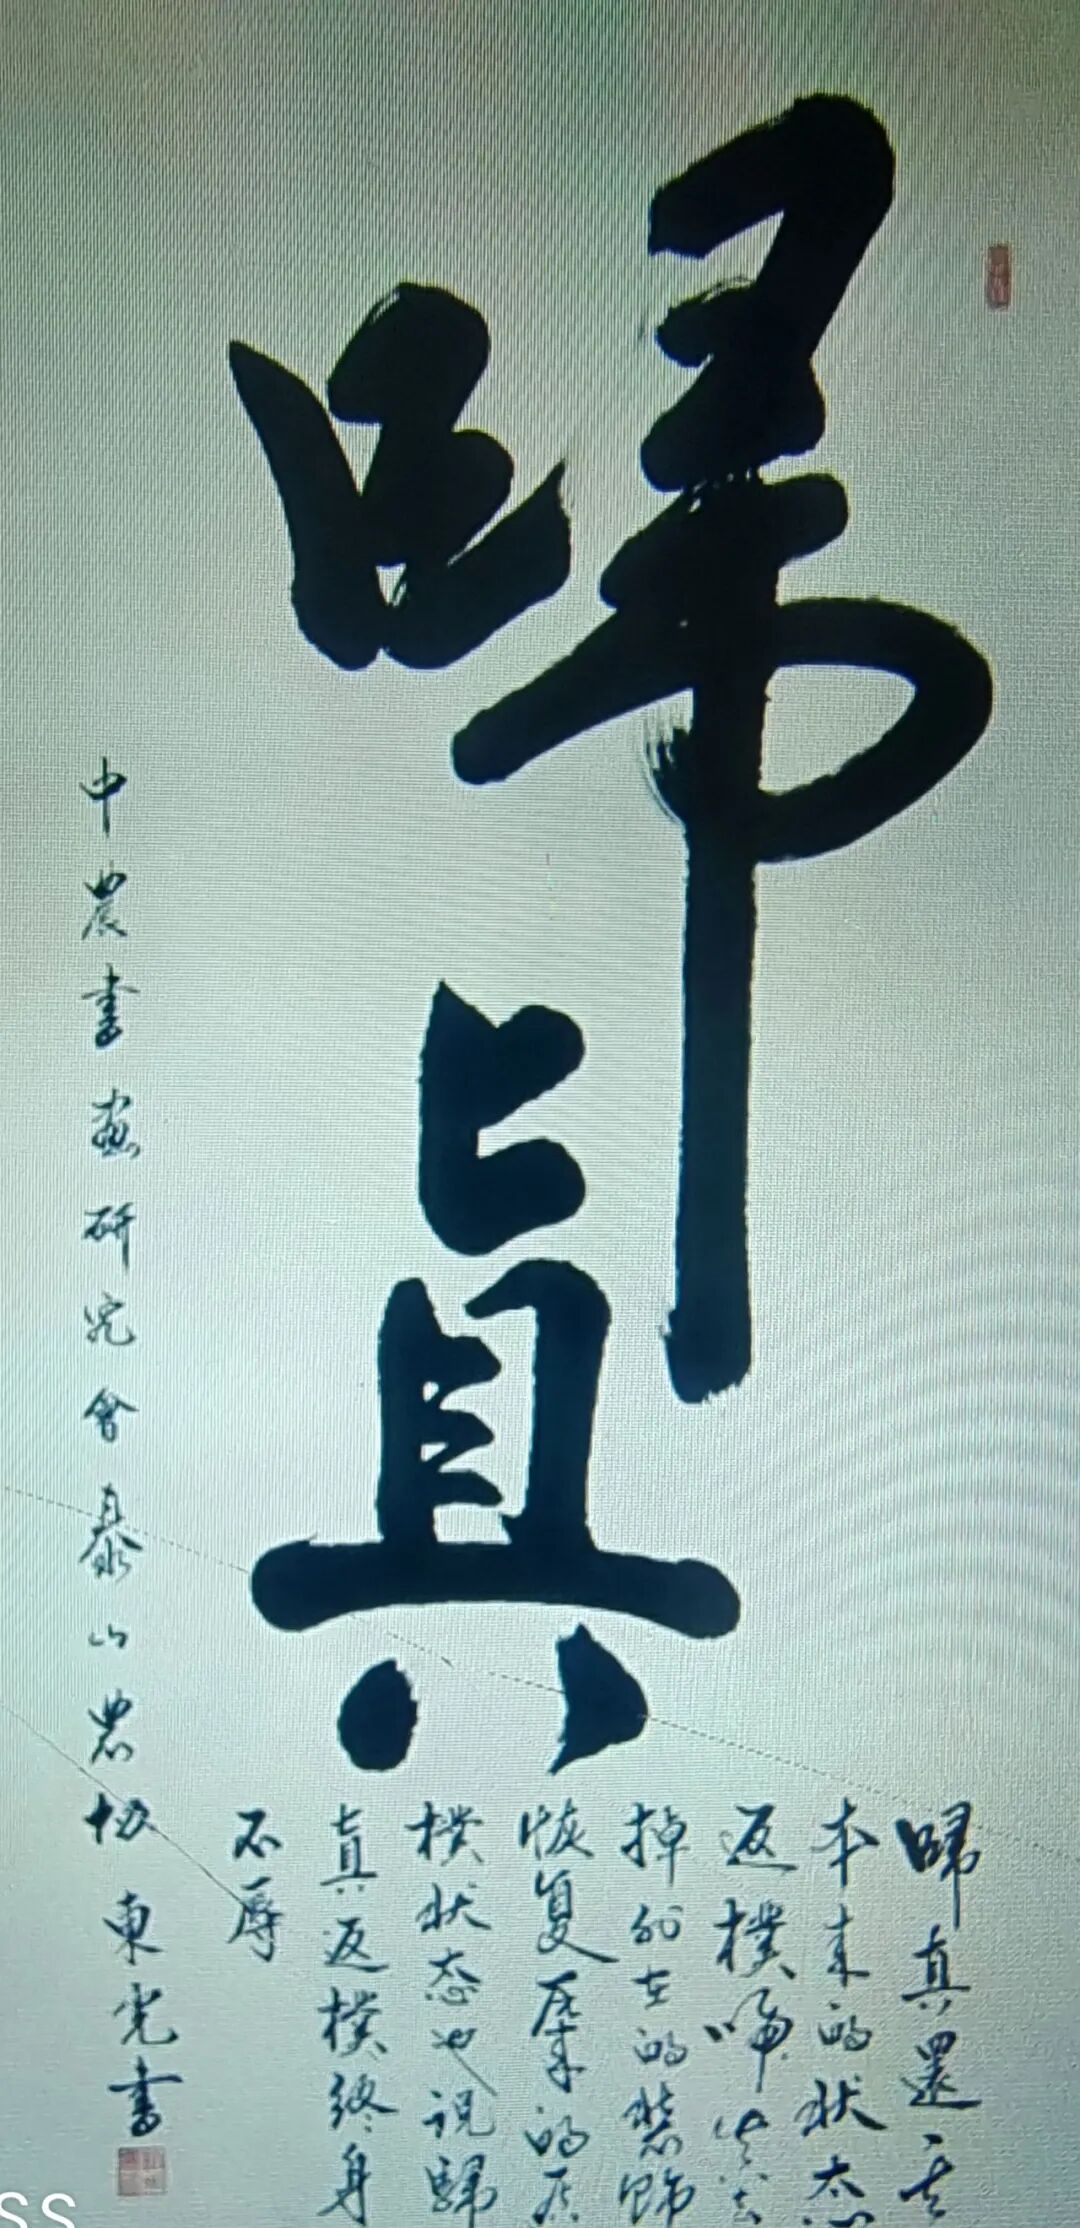 歸真
歸真還其
本来的状态
返樸歸真去
掉外在的裝飾
恢复原来的质
樸状态也说歸
真返樸终身
不辱
中農書画研究會泰山農协
東光書
SS